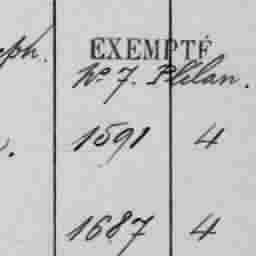 eph. EXEMPTÉ
No 7. Plélan.
1591 4
1687 4